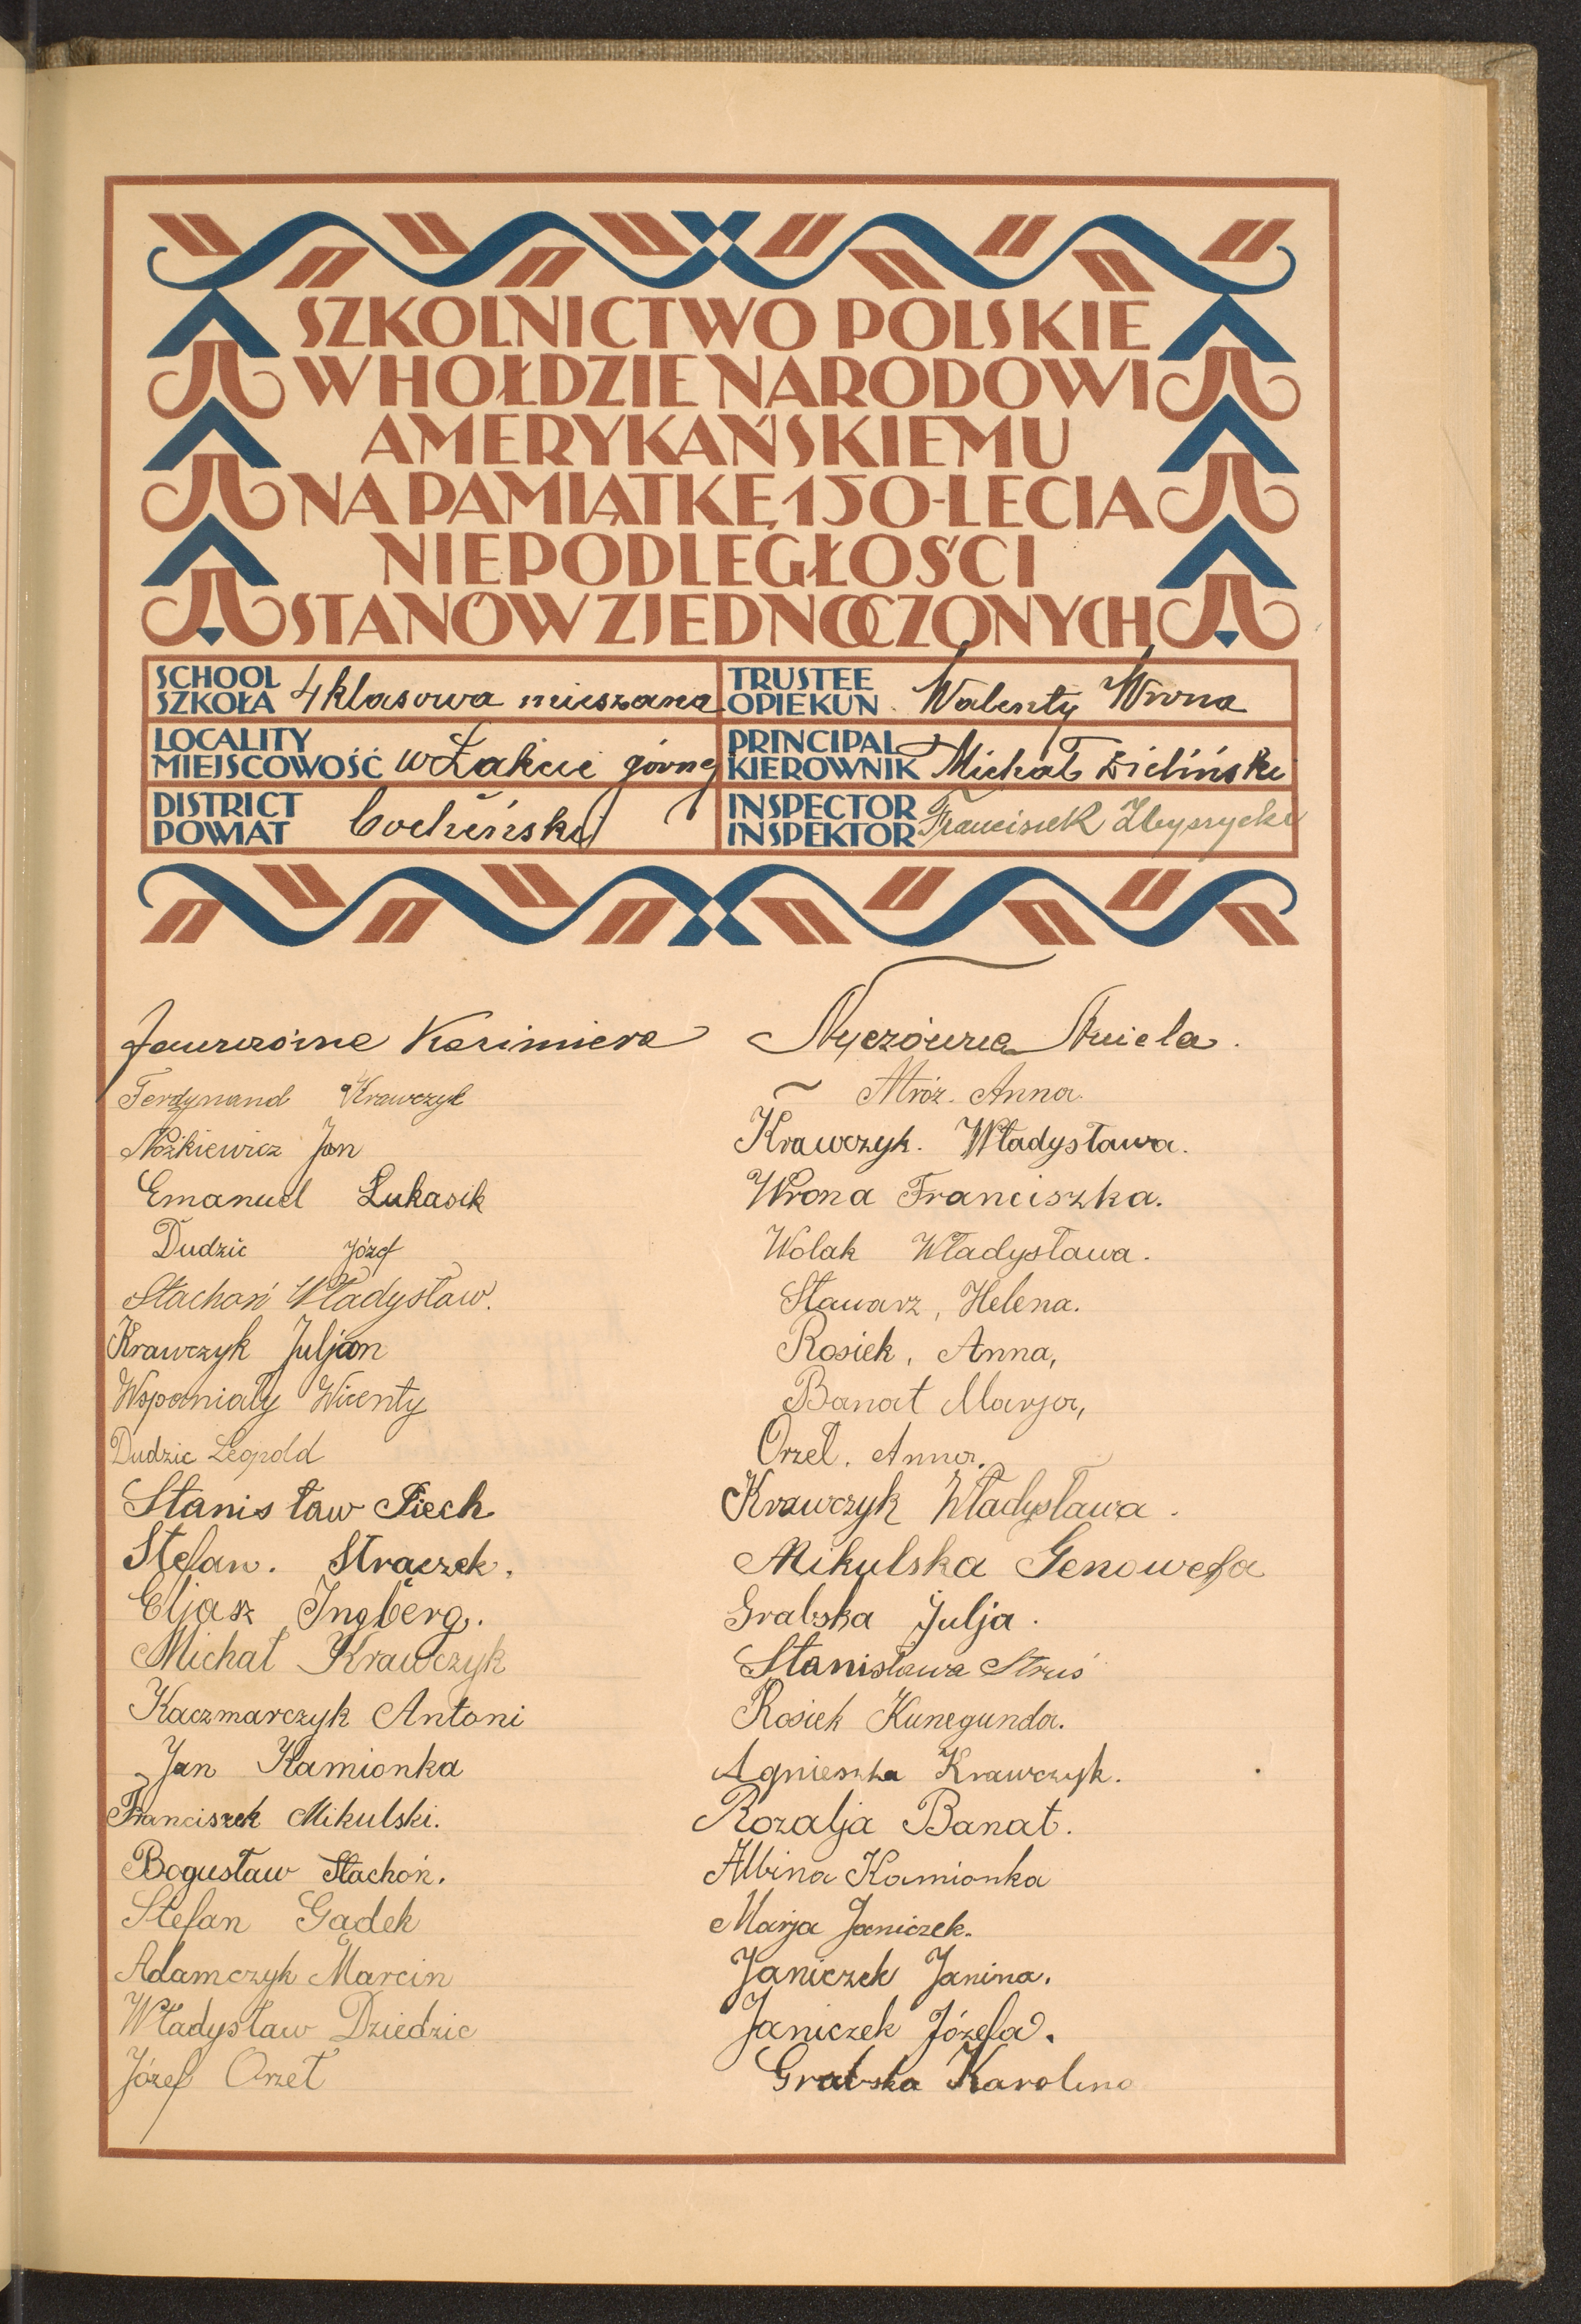 SZKOLNICTWO POLSKIE
W HOŁDZIE NARODOWI
AMERYKAŃSKIEMU
NA PAMIĄTKĘ 150-LECIA
NIEPODLEGŁOŚCI
STANÓW ZJEDNOCZONYCH
SCHOOL
SZKOŁA 4 klasowa mieszana
TRUSTEE
OPIEKUN Walenty Wrona
LOCALITY
MIEJSCOWOŚĆ w Łakcie górnej
PRINCIPAL
KIEROWNIK Michał Zieliński
DISTRICT
POWIAT bocheński
INSPECTOR
INSPEKTOR Franciszek
Kazimiera
Ferdynand Krawczyk
Nożkiewicz Jan
Emanuel Łukasik
Dudzic Józef
Stachoń Władysław.
Krawczyk Juljan
Wspaniały Wicenty
Dudzic Leopold
Stanisław Piech
Stefan. Strączek.
Eljasz Ingberg.
Michał Krawczyk
Kaczmarczyk Antoni
Jan Kamionka
Franciszek Mikulski.
Bogusław Stachoń.
Stefan Gądek
Adamczyk Marcin
Władysław Dziedzic
Józef Orzeł
Nyczówna Aniela.
Mróz. Anna.
Krawczyk. Władysława.
Wrona Franciszka.
Wolak Władysława.
Stawarz, Helena.
Rosiek, Anna,
Banat Marja,
Orzeł. Anna.
Krawczyk Władysława.
Mikulska Genowefa
Grabska Julja.
Stanisława Struś
Rosiek Kunegunda.
Agnieszka Krawczyk.
Rozalja Banat.
Albina Kamionka
Marja Janiczek.
Janiczek Janina.
Janiczek Józefa.
Grabska Karolina